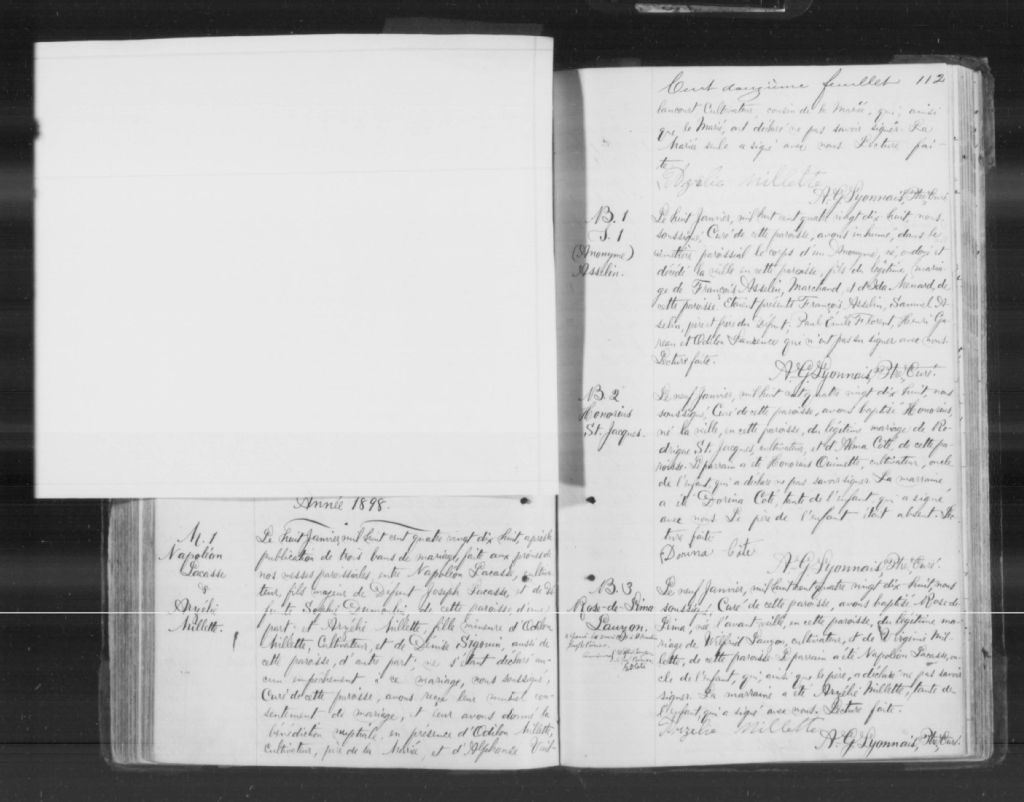 Année 1898.
M. 1
Napoléon
Lacasse
&
Arzélie
Millette.
Le huit Janvier, mil huit cent quatre vingt dix huit, après la
publication de trois bans de mariage, fait aux prônes de
nos messes paroissiales, entre Napoléon Lacasse, cultiva-
teur, fils majeur de Défunt Joseph Lacasse, et de Dé-
funte Sophie de cette paroisse, d'une
part; et Arzélie Millette, fille mineure d'Odilon
Millette, Cultivateur, et de Denise Sigouin, aussi de
cette paroisse, d'autre part; ne s'étant déclaré au-
cun empêchement à ce mariage, nous soussigné,
Curé de cette paroisse, avons reçu leur mutuel con-
sentement de mariage, et leur avons donné la
bénédiction nuptiale, en présence d'Odilon Millette,
Cultivateur, père de la Mariée, et d'Alphonse Vail-
Cent douzième feuillet 112
lancourt Cultivateur, cousin de la Mariée, qui, ainsi
que le Marié, ont déclaré ne pas savoir signer. La
Mariée seule a signé avec nous. Lecture fai-
te.
Arzélie Millette
A. G. Lyonnais, Ptre, Curé.
B. 1
S. 1
(Anonyme)
Asselin.
Le huit Janvier, mil huit cent quatre vingt dix huit, nous
soussigné, Curé de cette paroisse, avons inhumé, dans le
cimetière paroissial le corps d'un Anonyme, né, ondoyé et
décédé la veille en cette paroisse, fils du légitime maria-
ge de François Asselin, Marchand, et d'Ida Menard, de
cette paroisse. Etaient présents François Asselin, Samuel As-
selin, père et frère du défunt, Paul Emile Florent, Henri Ga-
reau et Odilon qui n'ont pas su signer avec nous.
Lecture faite.
A. G. Lyonnais, Ptre, Curé.
B. 2
Honorius
St. Jacques.
Le neuf Janvier, mil huit cent quatre vingt dix huit, nous
soussigné, Curé de cette paroisse, avons baptisé Honorius,
né la veille, en cette paroisse, du légitime mariage de Ro-
drigue St. Jacques, cultivateur, et d'Alma Coté, de cette pa-
roisse. Le parrain a été Honorius Ouimette, cultivateur, oncle
de l'enfant, qui a déclaré ne pas savoir signer. La marraine
a été Dorina Coté, tante de l'enfant qui a signé
avec nous. Le père de l'enfant était absent. Lec-
ture faite
Dorina Côté
A. G. Lyonnais, Ptre, Curé.
B. 3
Rose-de-Lima
Lauzon.
Le neuf Janvier, mil huit cent quatre vingt dix huit, nous
soussigné, Curé de cette paroisse, avons baptisé Rose-de-
Lima, née l'avant veille, en cette paroisse, du légitime ma-
riage de Wilfrid Lauzon, cultivateur, et de Virginie Mil-
lette, de cette paroisse. Le parrain a été Napoléon Lacasse, on-
cle de l'enfant, qui, ainsi que le père, a déclaré ne pas savoir
signer. La marraine a été Arzélie Millette, tante de
l'enfant, qui a signé avec nous. Lecture faite.
Arzélie Millette
A. G. Lyonnais, Ptre, Curé.